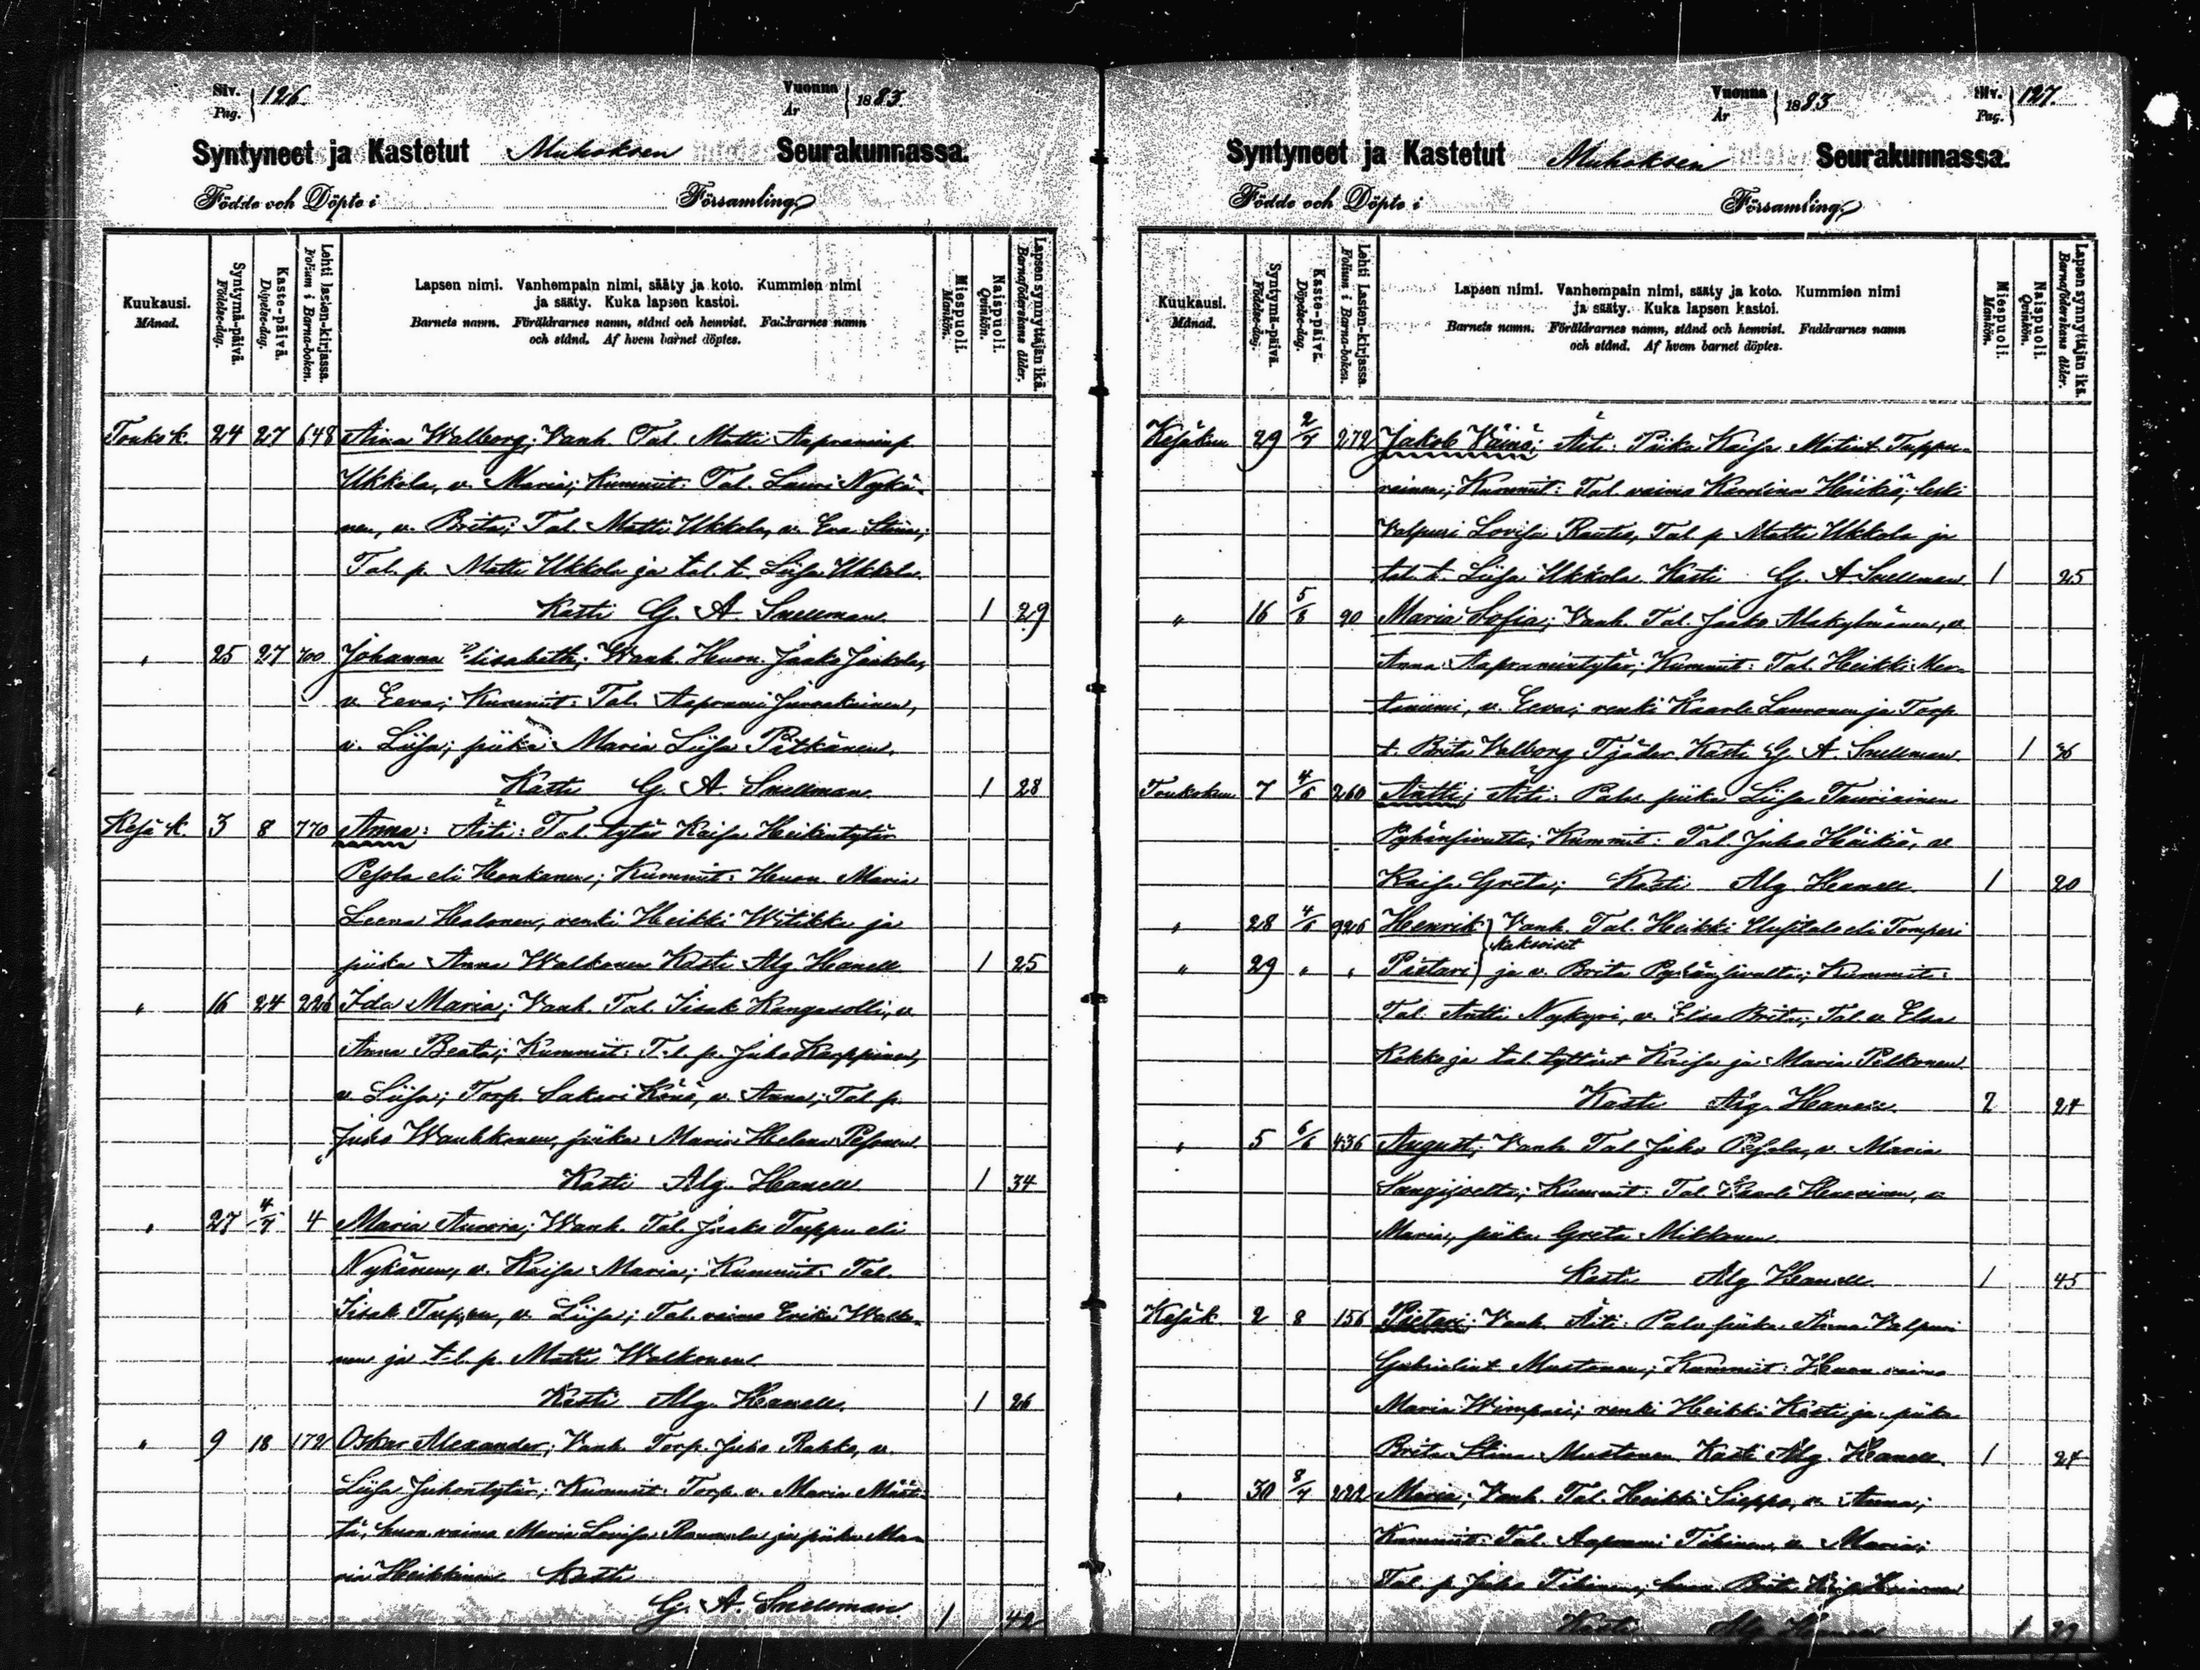 Siv. Pag. 126.
Vuonna År 1883.
Syntyneet ja Kastetut Muhoksen Seurakunnassa.
Födde och Döpte i Församling
Kuukausi. Månad.
Syntymä-päivä. Födelse-dag.
Kaste-päivä. Döpelse-dag.
Lehti lasten-kirjassa. Folium i Barna-boken.
Lapsen nimi. Vanhempain nimi, sääty ja koto. Kummien nimi
ja sääty. Kuka lapsen kastoi.
Barnets namn. Föräldrarnes namn, stånd och hemvist. Faddrarnes namn
och stånd. Af hvem barnet döptes.
Miespuoli. Mankön.
Naispuoli. Qvinkön.
Lapsen synnyttäjän ikä. Barnaföderskans ålder.
Toukok. 24 27 648 Aina Walborg; Vanh. Tal. Matti Aapraminp.
Ukkola, v. Maria; Kummit: Tal. Lauri Nykä-
nen, v. Brita; Tal. Matti Ukkola, v. Eva Stina;
Tal. p. Matti Ukkola ja tal. t. Liisa Ukkola.
Kasti G. A. Snellman. 1 29
" 25 27 700 Johanna Elisabeth; Vanh. Huon. Jaako Jaakola,
v. Eeva; Kummit: Tal. Aaprami Juurakainen,
v. Liisa; piika Maria Liisa Pitkänen.
Kasti G. A. Snellman. 1 28
Kesäk. 3 8 770 Anna: Äiti: Tal. tytär Kaisa Heikintytär
Pesola eli Honkanen; Kummit: Huon. Maria
Leena Halonen, renki Heikki Witikka ja
piika Anna Walkonen Kasti Alg. Hanell 1 25
" 16 24 226 Ida Maria; Vanh. Tal. Iisak Kangasolli, v.
Anna Beata; Kummit: T-l. p. Juho Karppinen,
v. Liisa; Torp. Sakari Könö, v. Anna; Tal. p.
Juho Wauhkonen, piika Maria Helena Pesonen
Kasti Alg. Hanell 1 34
" 27 4/7 4 Maria Aurora; Vanh. Tal. Jaako Tuppu eli
Nykänen, v. Kaisa Maria; Kummit: Tal.
Iisak Tuppu, v. Liisa; Tal. vaimo Erika Walko-
nen ja t-l. p. Matti Walkonen
Kasti Alg. Hanell. 1 26
" 9 18 172 Oskar Alexander; Vanh. Torp. Juho Rahko, v.
Liisa Juhontytär; Kummit: Torp. v. Maria Mäat-
tä, huon. vaimo Maria Lovisa ja piika Ma-
ria Heikkinen Kasti
G. A. Snellman. 1 42
Vuonna År 1883
Siv. Pag. 127.
Syntyneet ja Kastetut Muhoksen Seurakunnassa.
Födde och Döpte i Församling.
Kuukausi. Månad.
Syntymä-päivä. Födelse-dag.
Kaste-päivä. Döpelse-dag.
Lehti Lasten-kirjassa. Folium i Barna-boken.
Lapsen nimi. Vanhempain nimi, sääty ja koto. Kummien nimi
ja sääty. Kuka lapsen kastoi.
Barnets namn. Föräldrarnes namn, stånd och hemvist. Faddrarnes namn
och stånd. Af hvem barnet döptes.
Miespuoli. Mankön.
Naispuoli. Qvinkön.
Lapsen synnyttäjän ikä. Barnaföderskans ålder.
Kesäkuu 29 2/7 272 Jakob Väinö; Äiti: Piika Kaisa Matint. Tuppu-
rainen; Kummit: Tal. vaimo Karolina Häikiö; leski
Valpuri Lovisa Rautio, Tal. p. Matti Ukkola ja
tal. t. Liisa Ukkola. Kasti G. A. Snellman. 1 25
" 16 5/8 90 Maria Sofia; Vanh. Tal. Jaako Alakylmänen, v.
Anna Aapramintytär; Kummit: Tal. Heikki Mer-
taniemi, v. Eeva; renki Kaarle Lauronen ja Torp.
t. Brita Valborg Tjäder. Kasti G. A. Snellman. 1 36
Toukokuu 7 4/6 260 Antti; Äiti: Palv. piika Liisa Tauriainen
Pyhänsivulta; Kummit: Tal. Juho Häikiö, v.
Kaisa Greta; Kasti Alg Hanell. 1 20
" 28 4/6 926 Henrik Vanh. Tal. Heikki Uusitalo eli Tomperi
kaksoiset
" 29 " " Pietari ja v. Brita Pyhänsivulta; Kummit:
Tal. Antti Nykyri, v. Elsa Brita; Tal. v. Elsa
Kokko ja tal. tyttäret Kaisa ja Maria Pelkonen.
Kasti Alg. Hanell. 2 24
" 5 6/6 436 August; Vanh. Tal Juho Pesola, v. Maria
Sangijoelta; Kummit: Tal. Kaarle v.
Maria, piika Greta Mikkonen.
Kasti Alg Hanell. 1 45
Kesäk. 2 8 156 Pietari: Vanh. Äiti: Palv. piika Anna Valpuri
Gabrielint. Mustonen; Kummit: Huon. vaimo
Maria Wimpari; renki Heikki Kästi ja piika
Brita Stina Mustonen Kasti Alg. Hanell. 1 24
" 30 8/7 222 Maria; Vanh. Tal. Heikki Sieppo, v. Anna;
Kummit: Tal. Aaprami Tihinen, v. Maria;
Tal. p. Juho Tihinen, huon. Brita Kaisa Heinonen
Kasti Alg. Hanell 1 29